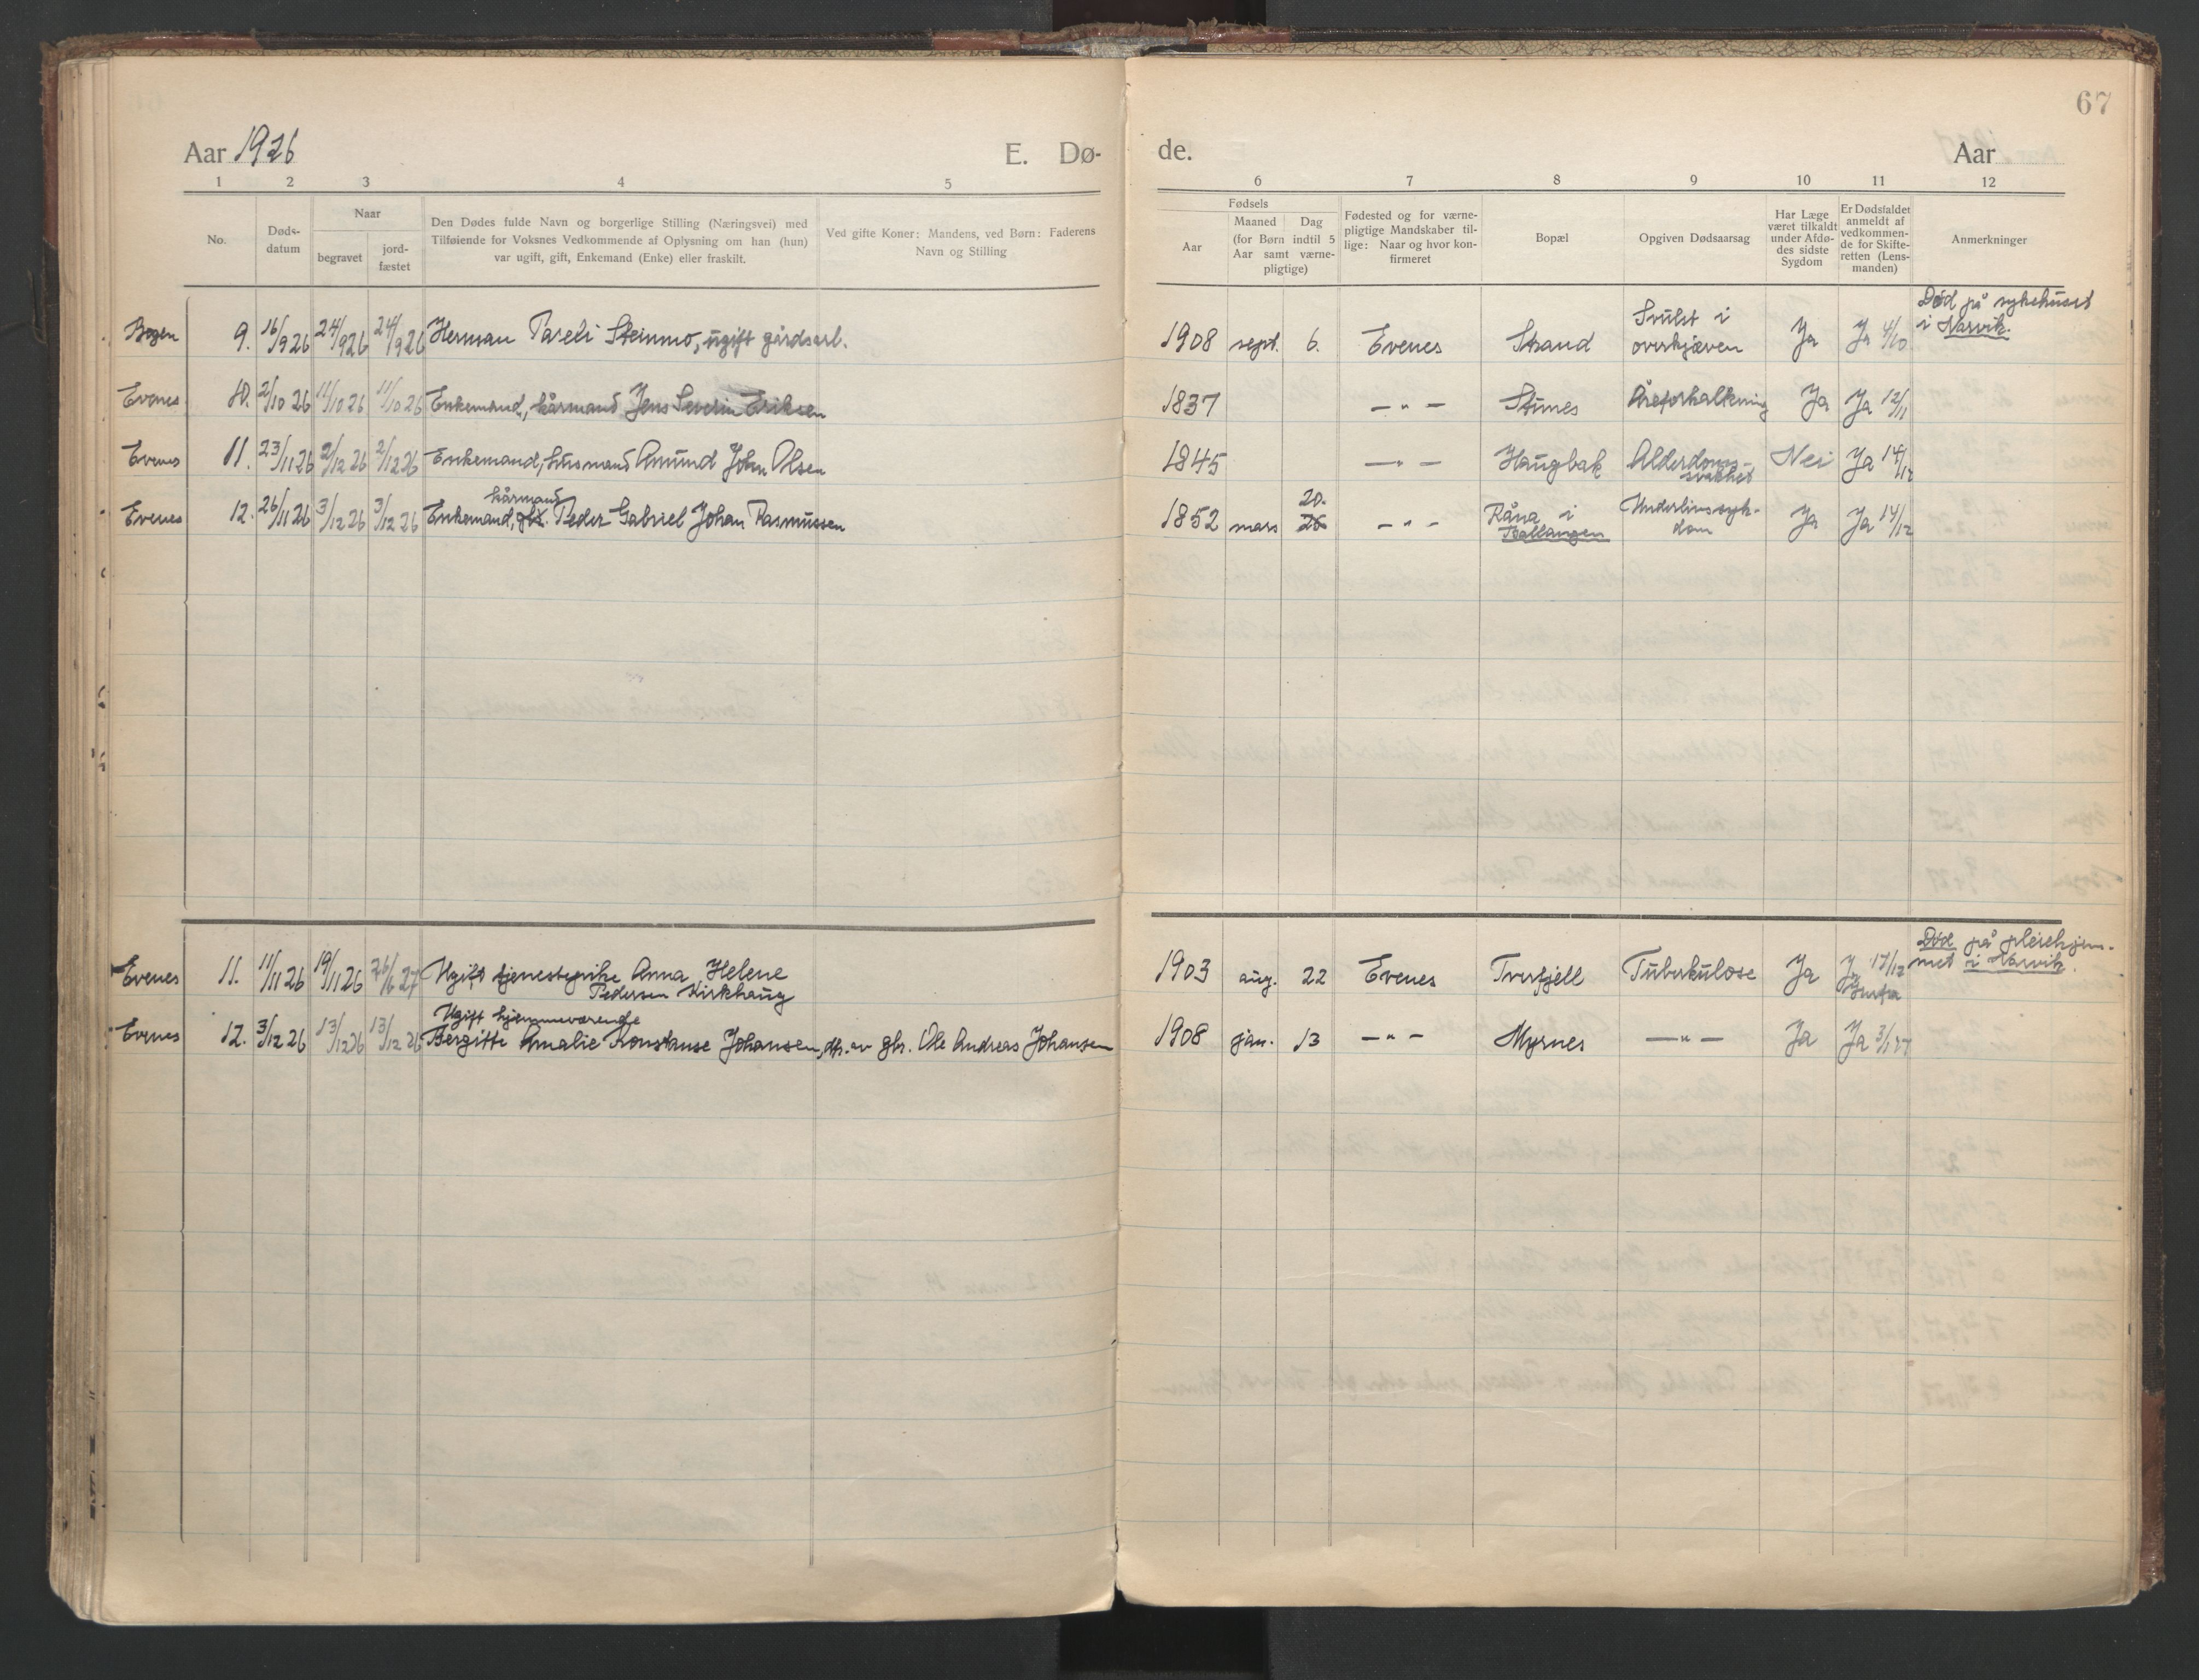 67
Aar 1926 E. Dø- de. Aar
1 2 3 4 5 6 7 8 9 10 11 12
No.
Døds-
datum
Naar
begravet
jord-
fæstet
Den Dødes fulde Navn og borgerlige Stilling (Næringsvei) med
Tilføiende for Voksnes Vedkommende af Oplysning om han (hun)
var ugift, gift, Enkemand (Enke) eller fraskilt.
Ved gifte Koner: Mandens, ved Børn: Faderens
Navn og Stilling
Fødsels
Aar
Maaned Dag
(for Børn indtil 5
Aar samt værne-
pligtige)
Fødested og for værne-
pligtige Mandskaber til-
lige: Naar og hvor kon-
firmeret
Bopæl
Opgiven Dødsaarsag
Har Læge
været tilkaldt
under Afdø-
des sidste
Sygdom
Er Dødsfaldet
anmeldt af
vedkommen-
de for Skifte-
retten (Lens-
manden)
Anmerkninger
Bogen 9. 16/9 26 24/9 26 24/9 26 Herman Pareli Steinmo, ugift gårdsarb. 1908 sept. 6. Evenes Strand Svulst i overkjæven Ja Ja 4/10 Død på sykehuset i Narvik.
Evenes 10. 2/10 26 11/10 26 11/10 26 Enkemand, kårmand Jens Severin Eriksen 1837 — " — Stunes Åreforkalkning Ja Ja 12/11
Evenes 11. 23/11 26 2/12 26 2/12 26 Enkemand, husmand Amund John Olsen 1845 — " — Haugbak Alderdoms- svakhet Nei Ja 14/12
Evenes 12. 26/11 26 3/12 26 3/12 26 Enkemand, kårmand Peder Gabriel Johan Rasmussen 1852 mars 20. 26 — " — Råna i Ballangen Underlivssyk- dom Ja Ja 14/12
Evenes 11. 11/11 26 19/11 26 26/6 27 Ugift tjenestepike Anna Helene Pedersen Kirkhaug 1903 aug. 22 Evenes Tverfjell Tuberkulose Ja Ja 17/12 Død på pleiehjem- met i Narvik.
Evenes 12. 3/12 26 13/12 26 13/12 26 Ugift hjemmeværende
Bergitte Amalie Konstanse Johansen, dtr. av gbr. Ole Andreas Johansen 1908 jan. 13 — " — Myrnes — " — Ja Ja 3/1 27